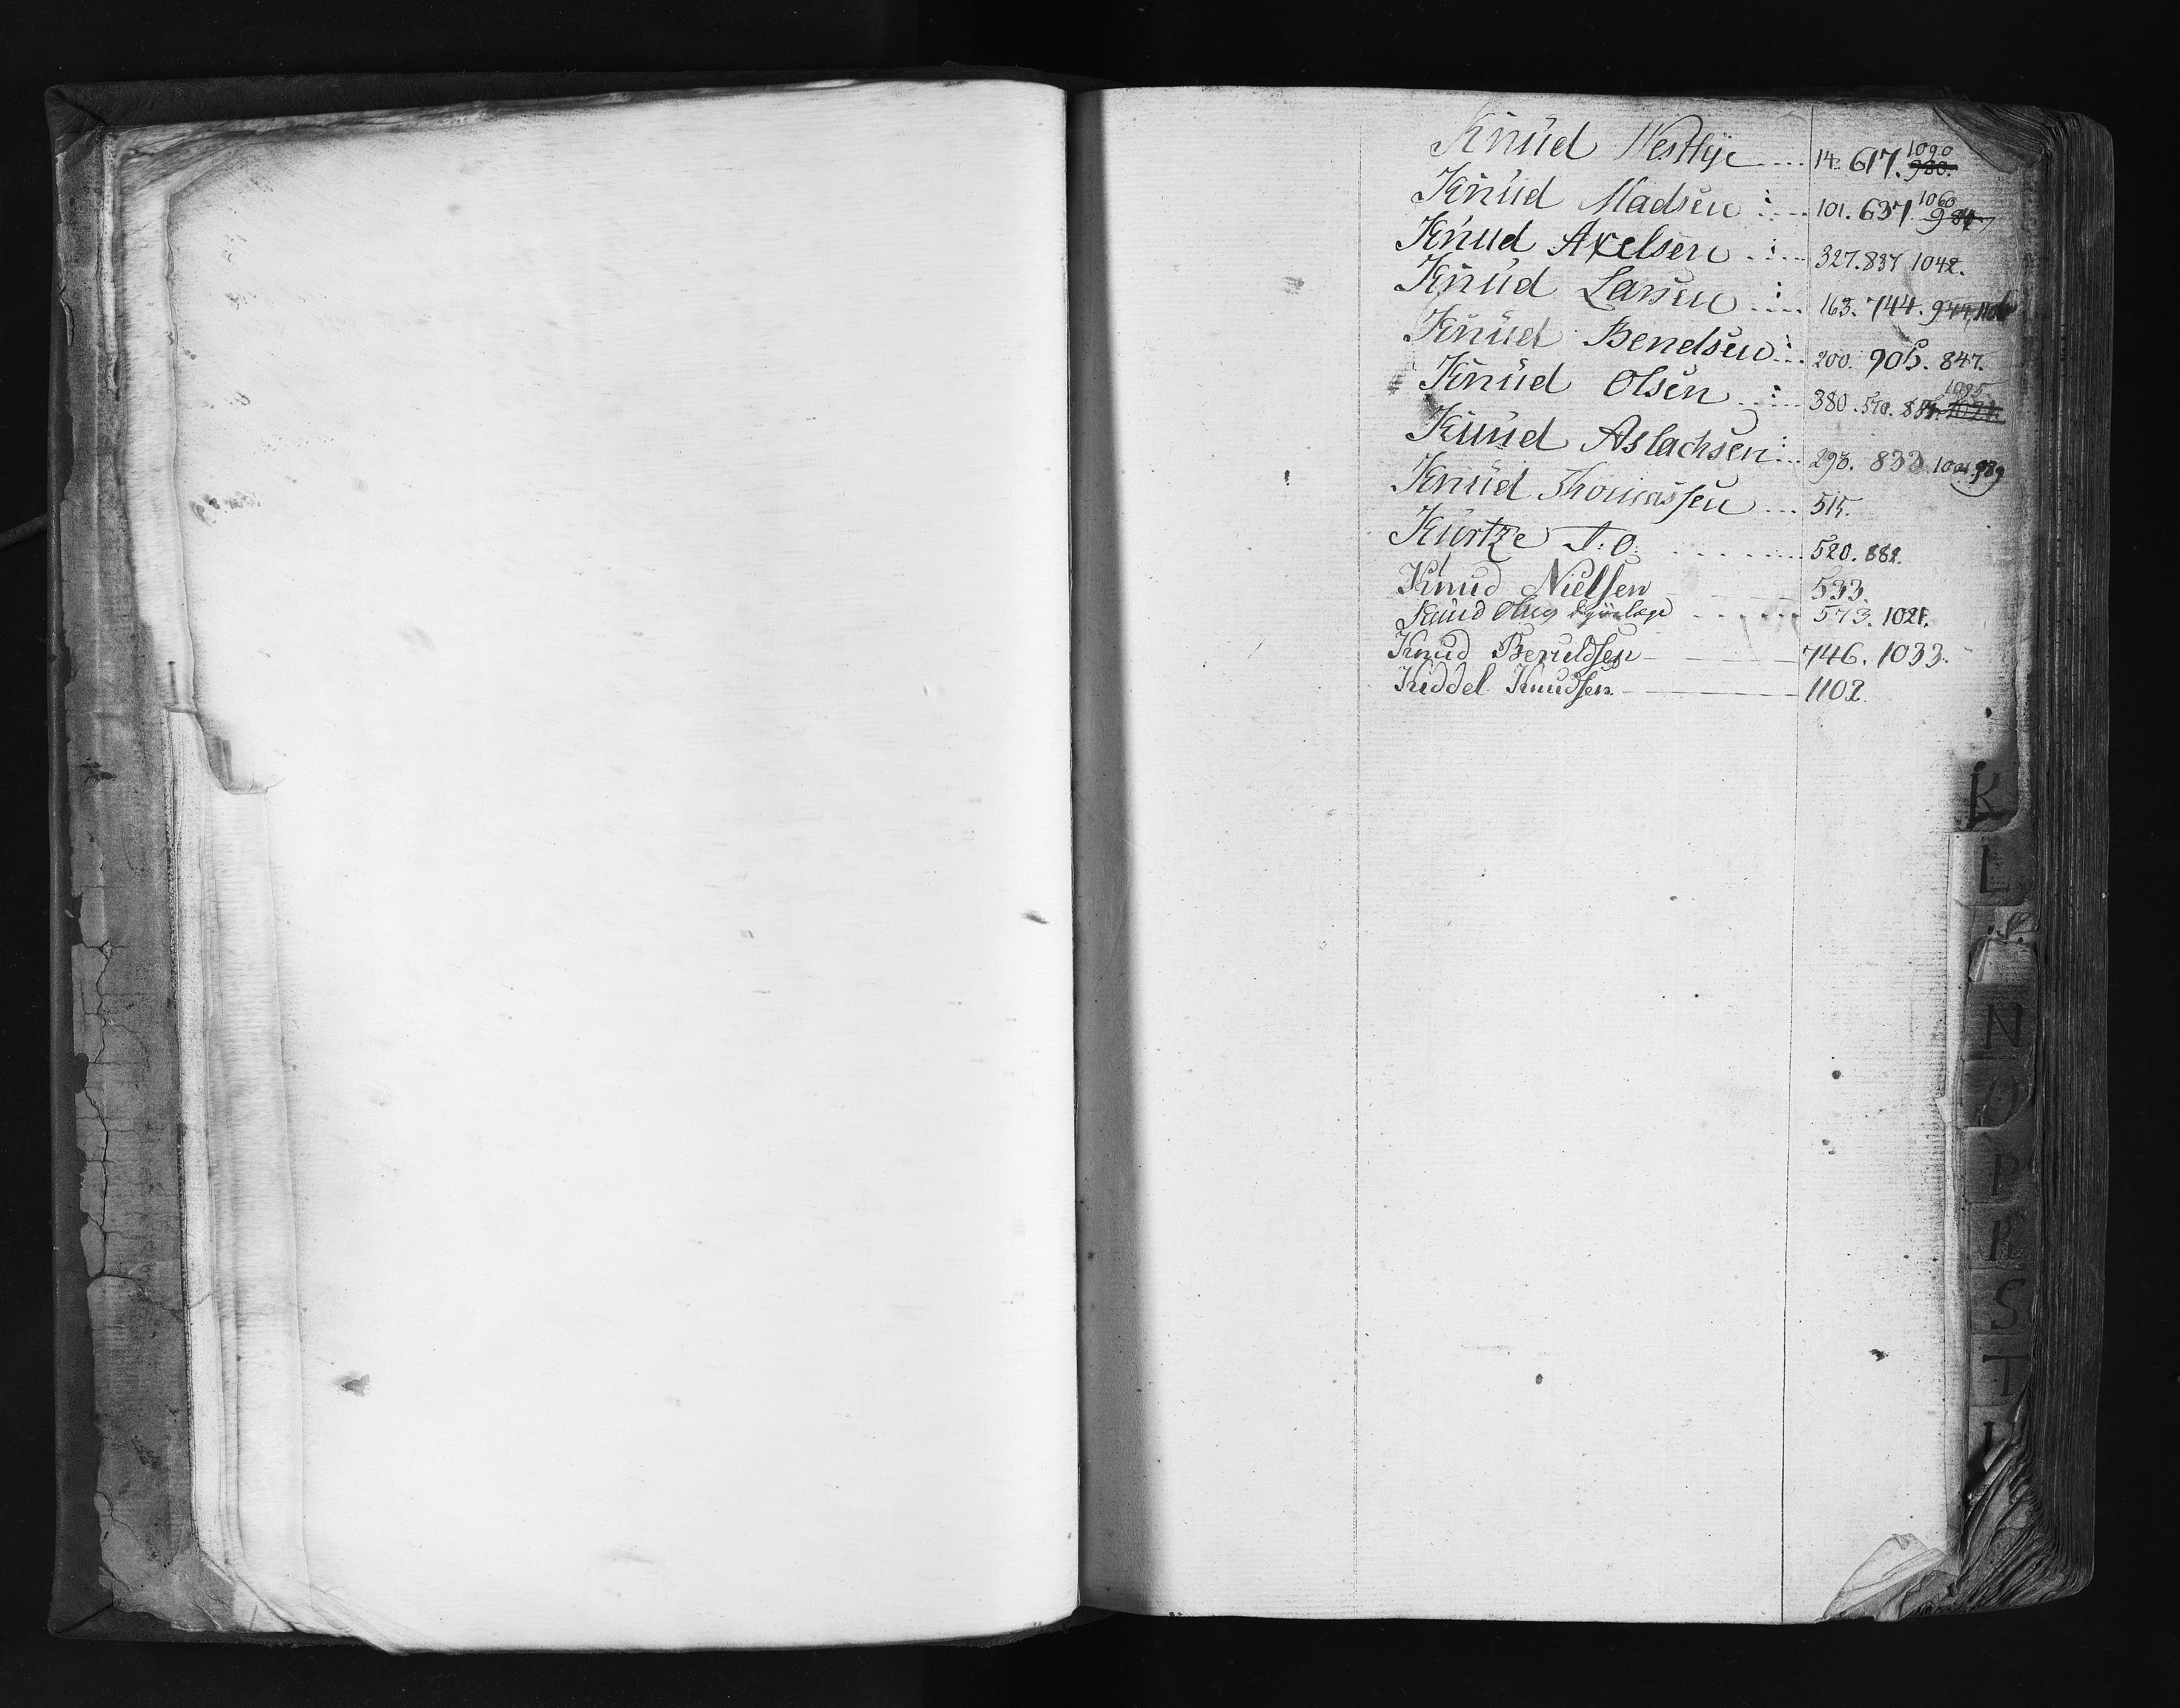 Knüd Westlÿe .... 14. 617. 1090 980.
Knüd Madsen .... 101. 637. 1060 987
Knud Axelsen .... 327. 837 1042.
Knüd Larsen .... 163. 744. 944.
Knüd Bendsen ... 200. 905. 847.
Knüd Olsen .... 380. 570. 1095
Knüd Aslachsen .. 293. 833 1001. 989
Knüd Thomassen ... 515.
Kürtze J: O: ....... 520. 882.
Knud Nielsen 533.
Knud Olsen ...... 573. 1021.
Knud Beruldsen 746. 1033.
Kiddel Knudsen 1102.
K
L
N
O
P
R
S
T